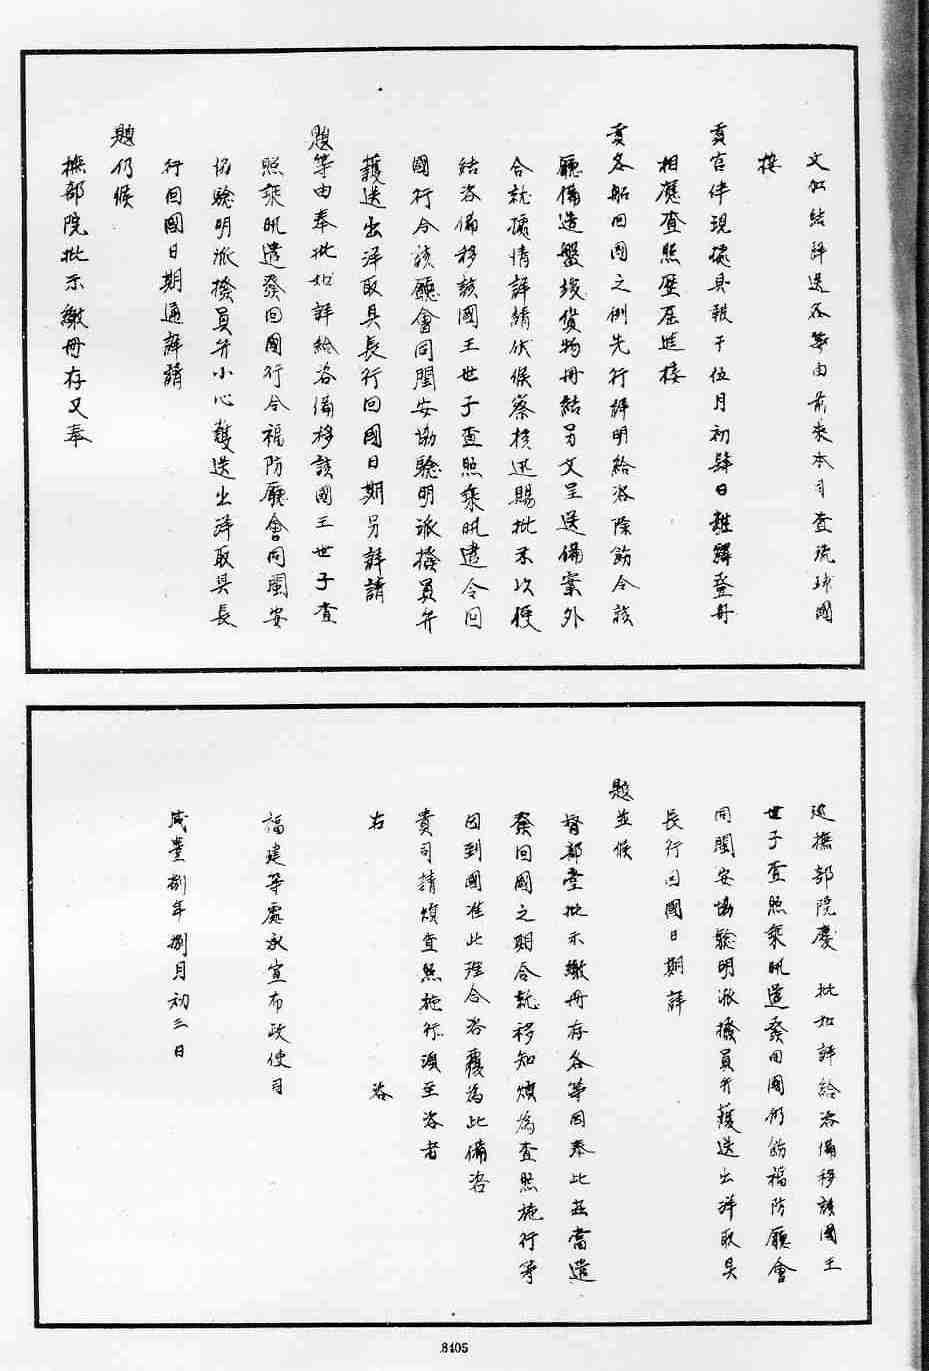 文加結詳送各等由前來本司查琉球國
接
貢官伴現據具報于伍月初肆日離驛登舟
相應查照歷屆進接
貢各船回國之例先行詳明給咨除飭令該
廳備造盤驗貨物冊結另文呈送備案外
合就據情詳請伏候察核迅賜批示以便
結咨備移該國王世子查照乘汛遣令回
國行令該廳會同閩安協驗明派撥員弁
護送出洋取具長行回國日期另詳請
題等由奉批如詳給咨備移該國王世子查
照乘汛遣發回國行令福防廳會同閩安
協驗明派撥員弁小心護送出洋取具長
行回國日期通詳請
題仍候
撫部院批示繳冊存又奉
巡撫部院慶 批如詳給咨備移該國王
世子查照乘汛遣發回國仍飭福防廳會
同閩安協驗明派撥員弁護送出洋取具
長行回國日期詳
題並候
督部堂批示繳冊存各等因奉此茲當遣
發回國之期合就移知煩為查照施行等
因到國准此理合咨覆為此備咨
貴司請煩查照施行須至咨者
右 咨
福建等處承宣布政使司
咸豊捌年捌月初三日
8405